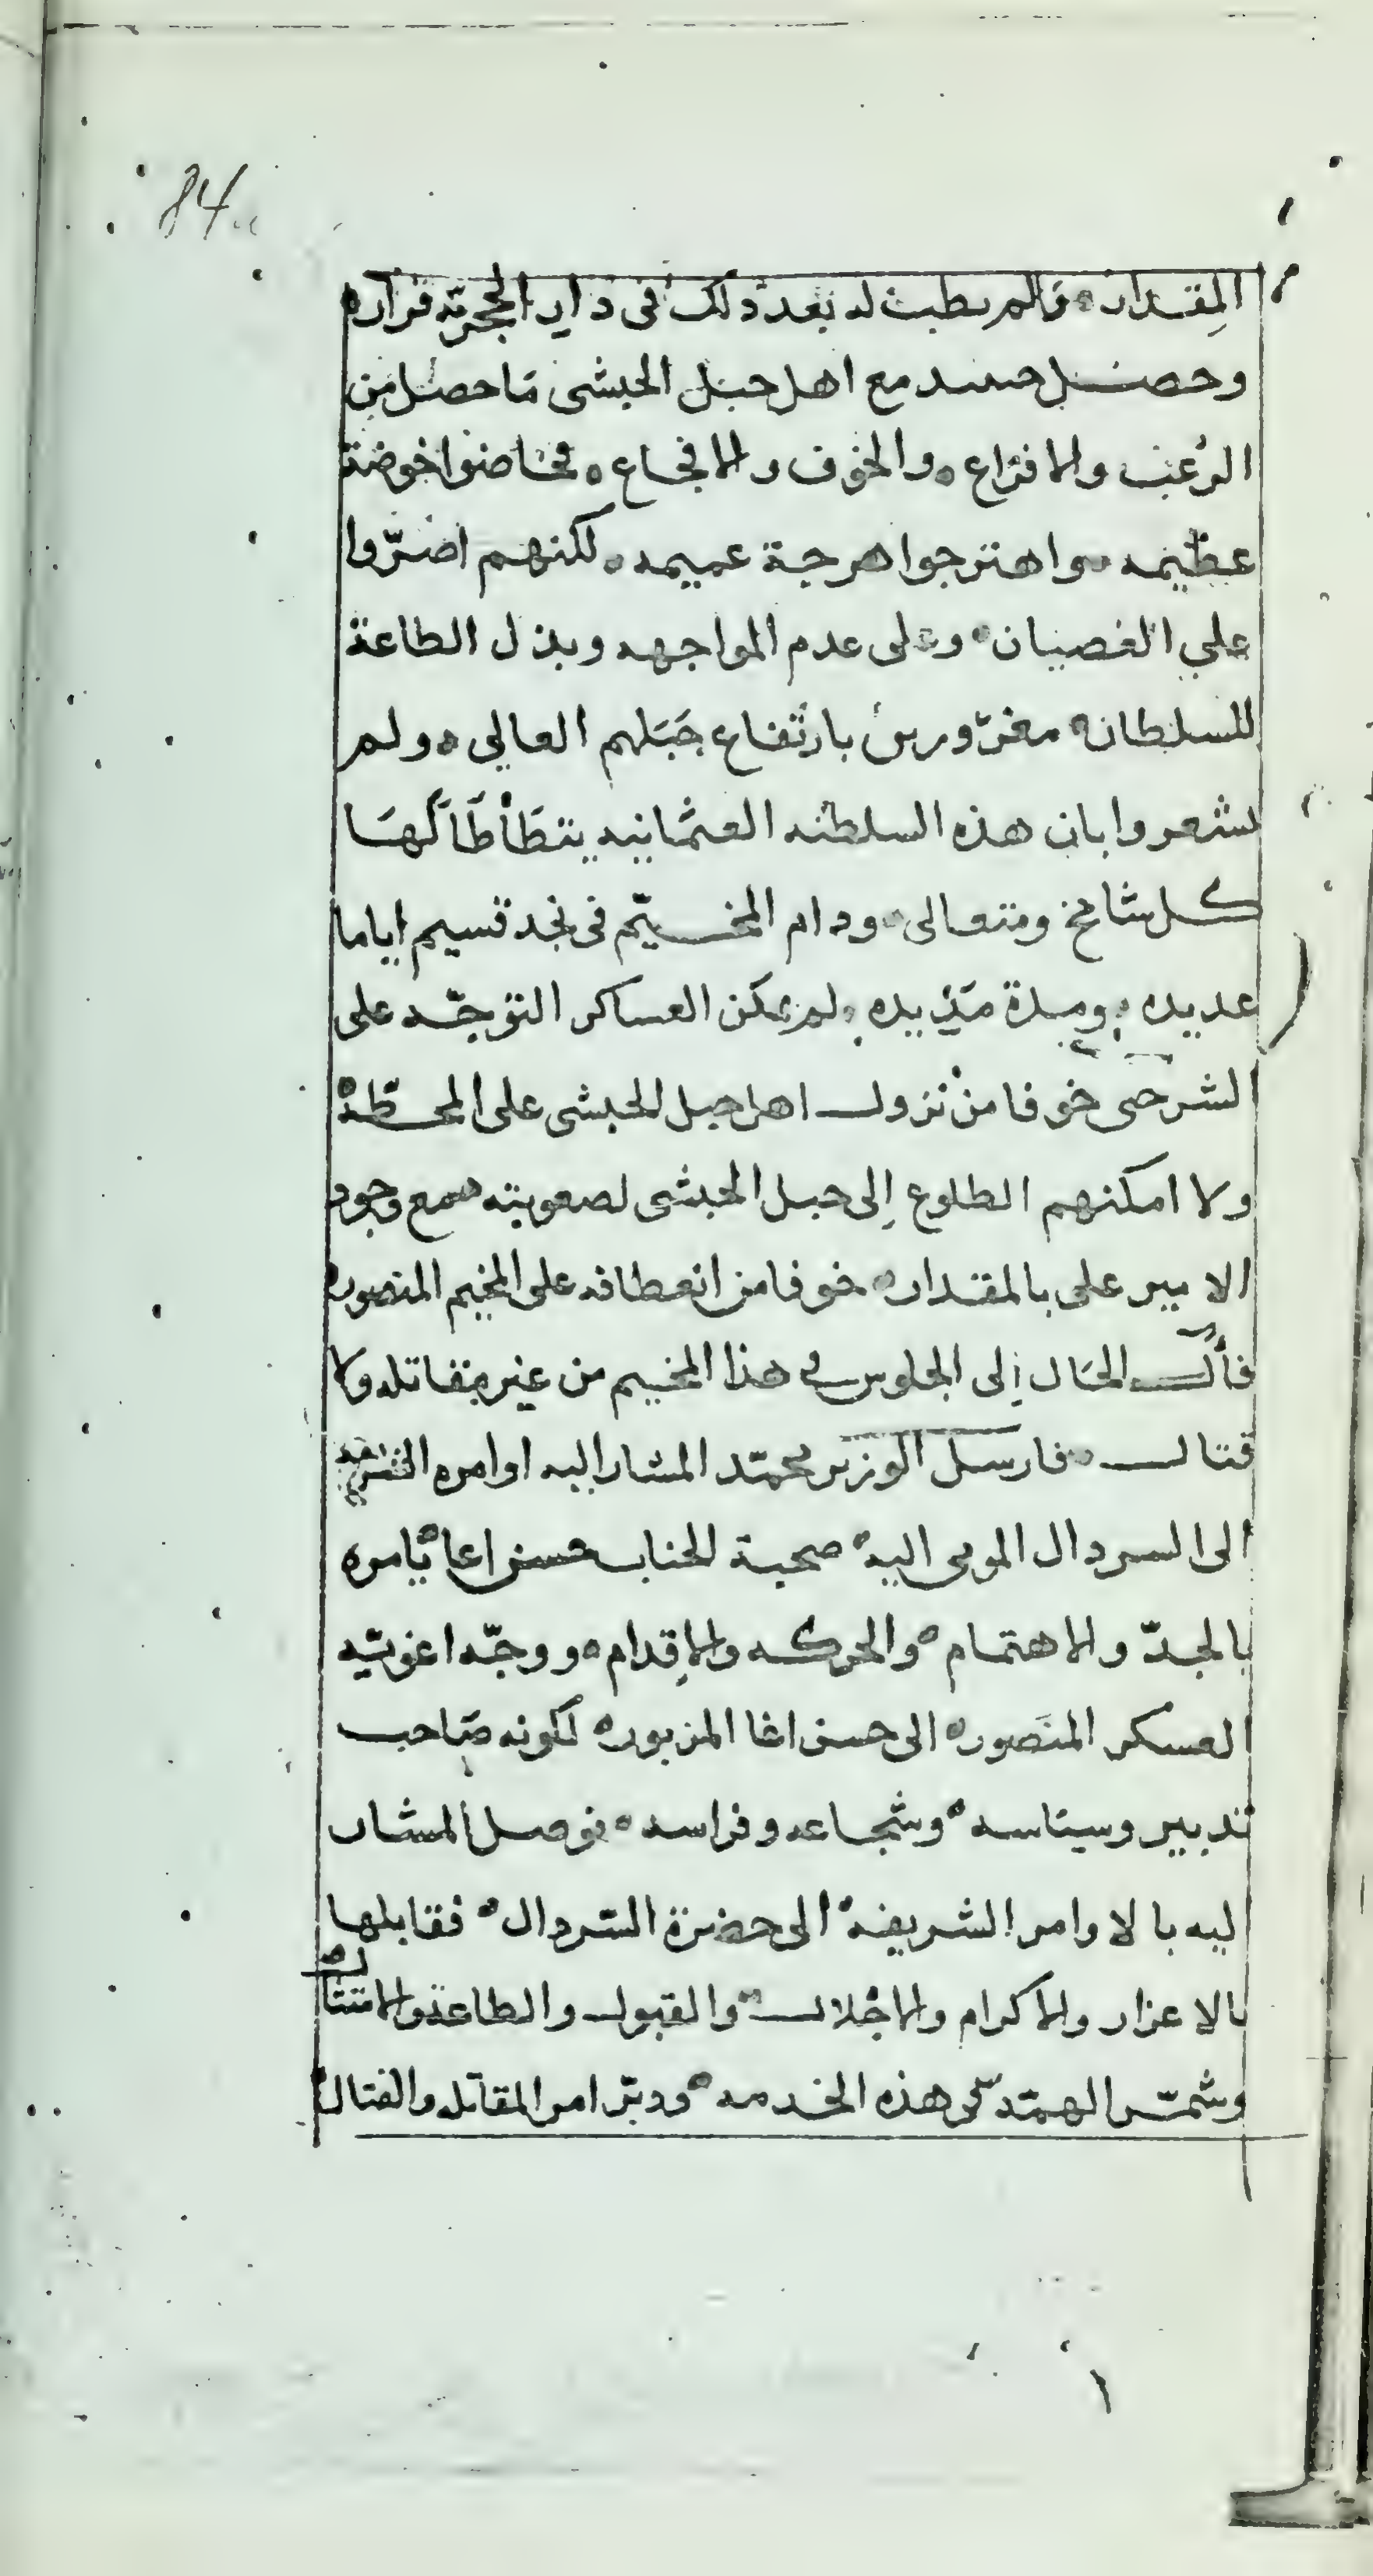 84
المقدار ولم يطب له بعد ذلك فى دار الحجرية قراره
وحصل مع اهل جبل الحبشى ما حصل من
الرعب والافزاع والخوف والافجاع فخاضوا خوضة
عظيمه واهترجوا هرجة عميمه لكنهم اصرّوا
على العصيان وعلى عدم المواجهه وبذل الطاعة
للسلطان مغرورين بارتفاع جبلهم العالي ولم
يشعروا بان هذه السلطنه العثمانيه يتطأطأ لها
كل شامخ ومتعالى ودام المخيّم فى نجد قسيم اياما
عديده ومدة مديده ولم يمكن العساكر التوجّه على
الشرجى خوفا من نزول اهل جبل الحبشى على المحطّة
ولا امكنهم الطلوع إلى جبل الحبشى لصعوبته مع وجود
الامير على بالمقدار خوفا من انعطافه على المخيم المنصور
فآل الحال إلى الجلوس في هذا المخيم من غير مقاتله ولا
قتال فارسل الوزير محمّد المشار اليه اوامره الشريفه
الى السردال المومى اليه صحبة الجناب حسن اغا يامره
بالجدّ والاهتمام والحركه والإقدام ووجّه اغوتيه
العسكر المنصوره الى حسن اغا المزبور لكونه صاحب
تدبير وسياسه وشجاعه وفراسه فوصل المشار
اليه بالاوامر الشريفه الى حضرة السّردال فقابلها
بالاعزاز والاكرام والاجلال والقبول والطاعة والامتثال
وشمّر الهمّه في هذه الخدمه ودبّر امر المقاتله والقتال